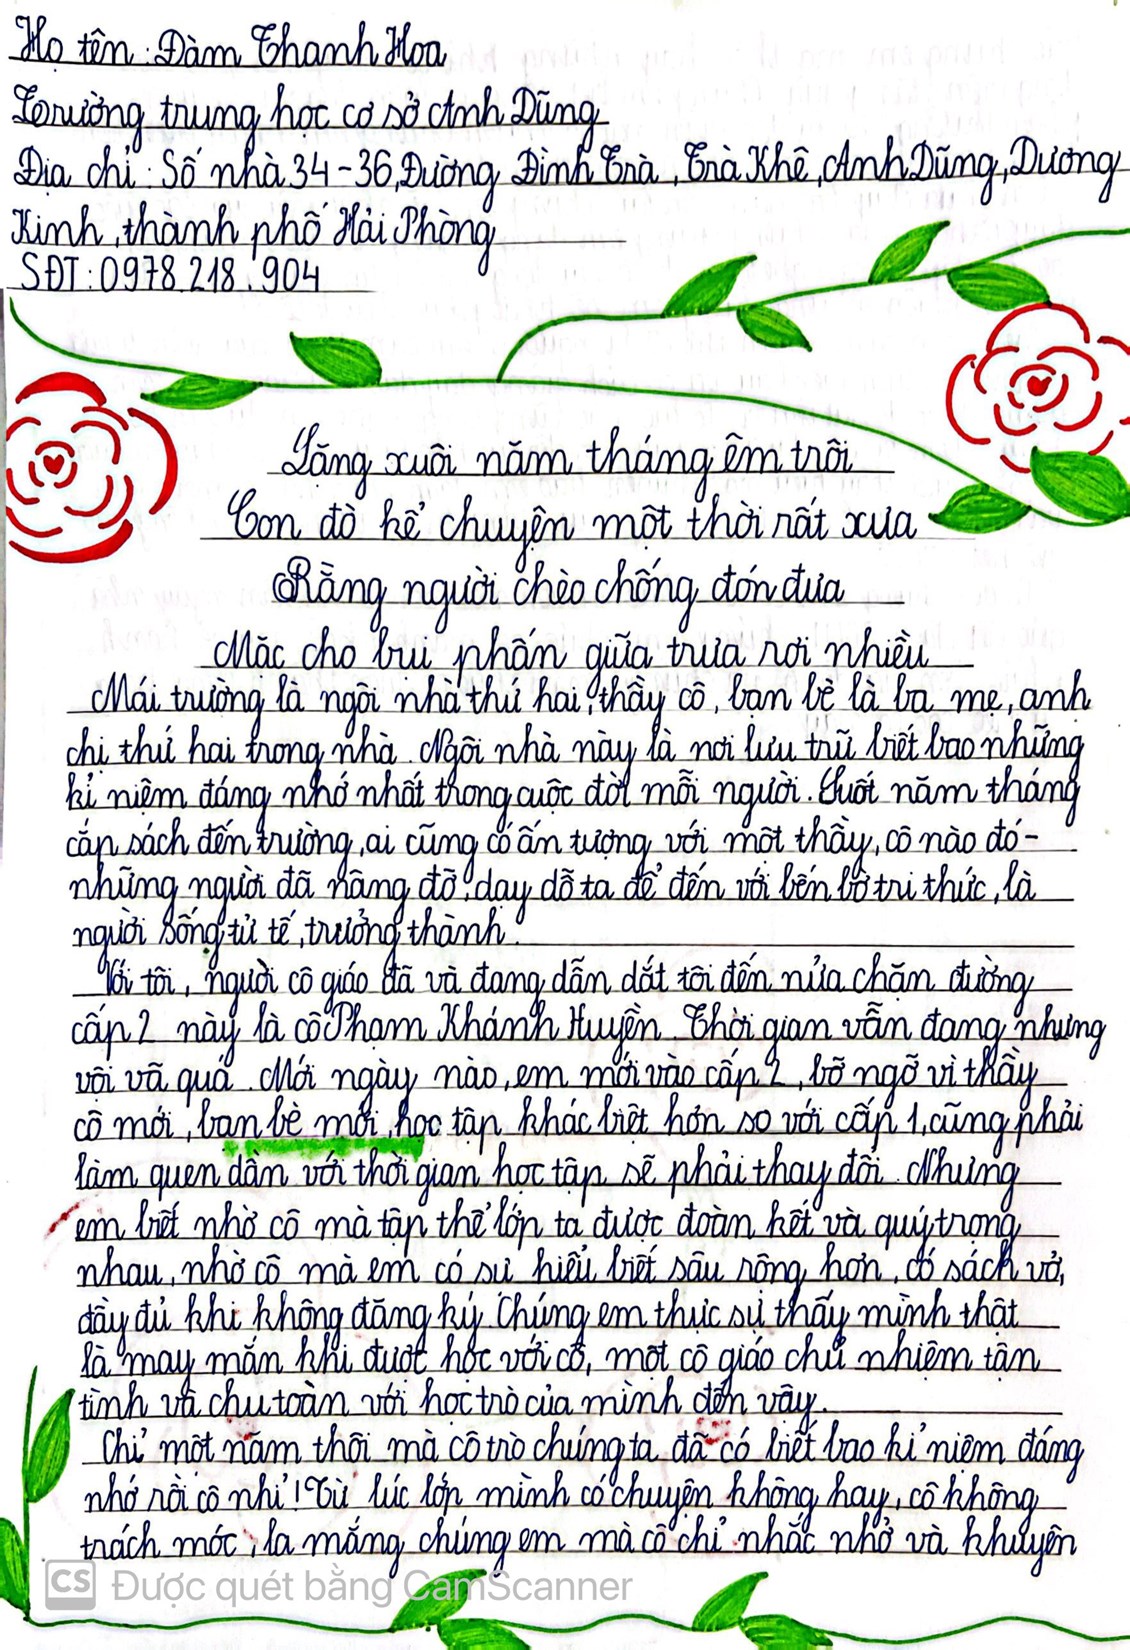 Họ tên: Đàm Thanh Hoa
Trường trung học cơ sở Anh Dũng
Địa chỉ: Số nhà 34-36, Đường Đình Trà, Trà Khê, Anh Dũng, Dương
Kinh, thành phố Hải Phòng
SĐT: 0978.218.904
Lặng xuôi năm tháng êm trôi
Con đò kể chuyện một thời rất xưa
Rằng người chèo chống đón đưa
Mặc cho bụi phấn giữa trưa rơi nhiều
Mái trường là ngôi nhà thứ hai, thầy cô, bạn bè là ba mẹ, anh
chị thứ hai trong nhà. Ngôi nhà này là nơi lưu trữ biết bao những
kỉ niệm đáng nhớ nhất trong cuộc đời mỗi người. Suốt năm tháng
cắp sách đến trường, ai cũng có ấn tượng với một thầy, cô nào đó-
những người đã nâng đỡ, dạy dỗ ta để đến với bến bờ tri thức, là
người sống tử tế, trưởng thành.
Với tôi, người cô giáo đã và đang dẫn dắt tôi đến nửa chặn đường
cấp 2 này là cô Phạm Khánh Huyền. Thời gian vẫn đang nhưng
vội vã quá. Mới ngày nào, em mới vào cấp 2, bỡ ngỡ vì thầy
cô mới, bạn bè mới, học tập khác biệt hơn so với cấp 1, cũng phải
làm quen dần với thời gian học tập sẽ phải thay đổi. Nhưng
em biết nhờ cô mà tập thể lớp ta được đoàn kết và quý trọng
nhau, nhờ cô mà em có sự hiểu biết sâu rộng hơn, có sách vở,
đầy đủ khi không đăng ký. Chúng em thực sự thấy mình thật
là may mắn khi được học với cô, một cô giáo chủ nhiệm tận
tình và chu toàn với học trò của mình đến vậy.
Chỉ một năm thôi mà cô trò chúng ta đã có biết bao kỉ niệm đáng
nhớ rồi cô nhỉ! Từ lúc lớp mình có chuyện không hay, cô không
trách móc, la mắng chúng em mà cô chỉ nhắc nhở và khuyên
CS Được quét bằng CamScanner